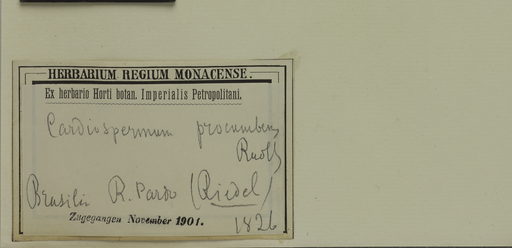 HERBARIUM REGIUM MONACENSE.
Ex herbario Horti botan. Imperialis Petropolitani.
Cardiospermum procumbens
Radlk
Brasilia R. Pardo (Riedel)
Zugegangen November 1901.
1826